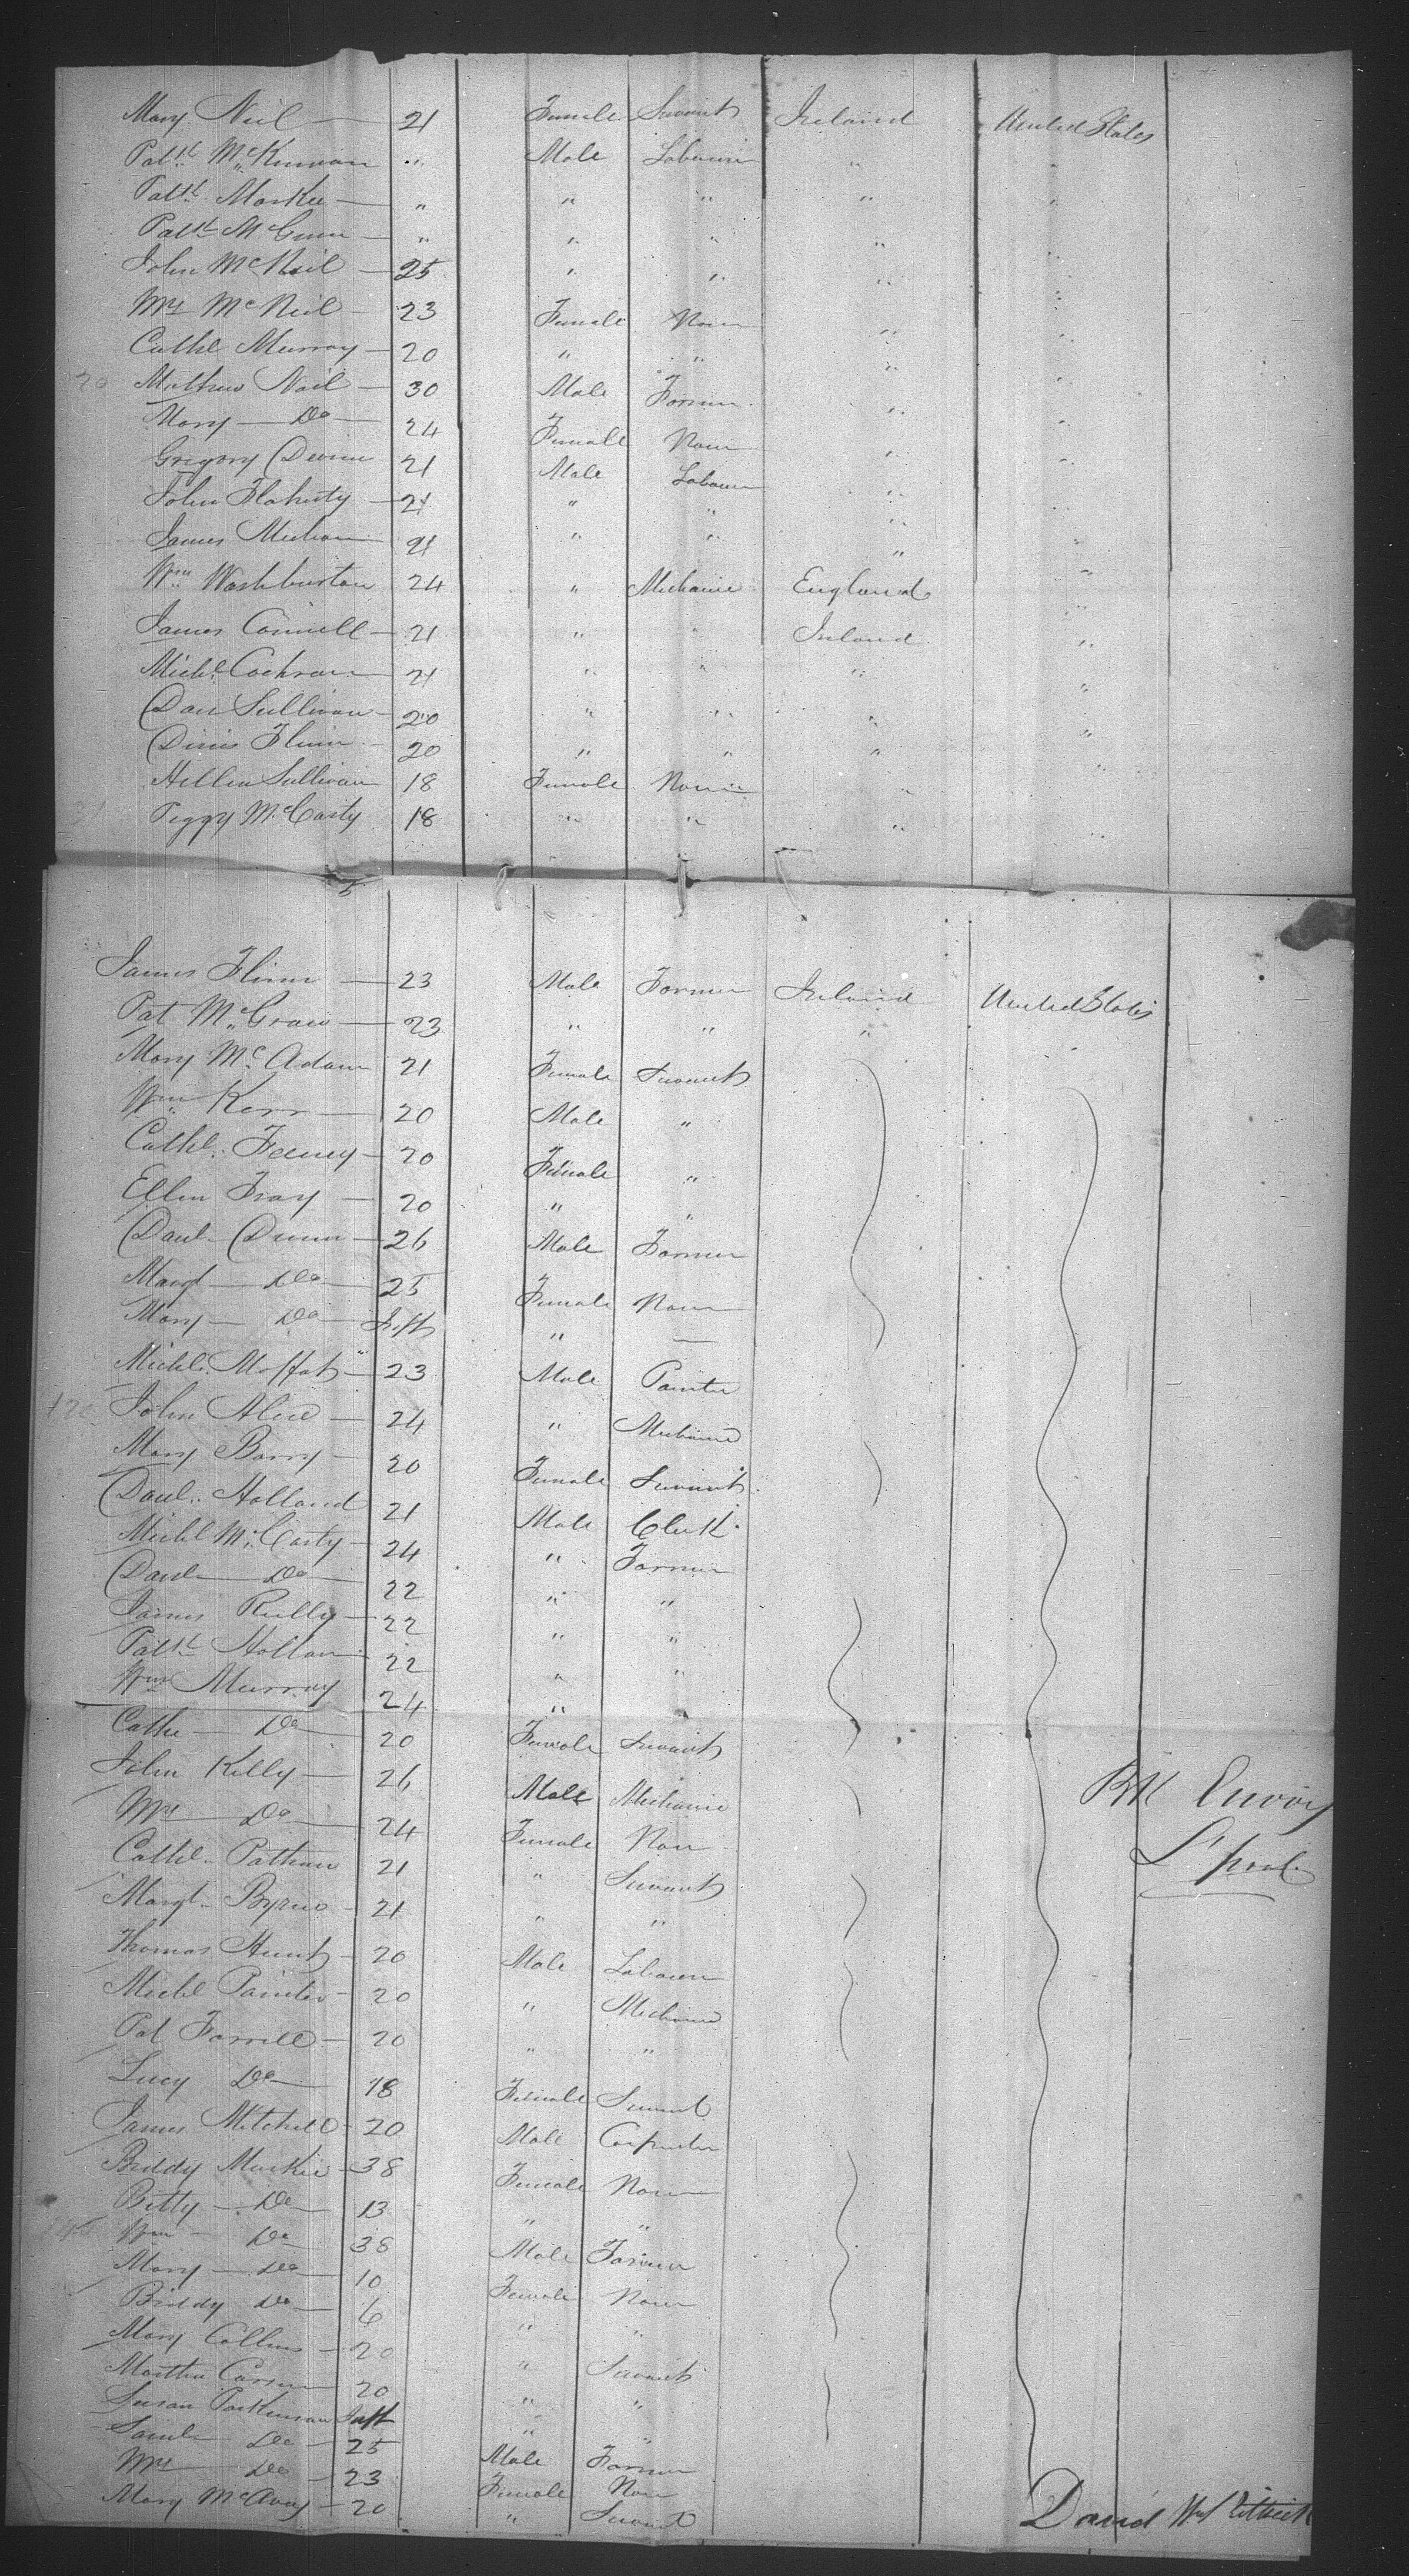 Mary Neil — 21 Female Servant Ireland United States
Patk. McKurnan " Male Labourer " "
Patk. Markee — " " " " "
Patk. McGinn — " " " " "
John McNeil — 25 " " " "
Mrs McNeil — 23 Female None " "
Cathe Murray — 20 " " " "
20 Mathew Neil — 30 Male Farmer " "
Mary — Do — 24 Female None " "
Gregory Devine 21 Male Labourer " "
John Flaherty — 21 " " " "
James Meehan 21 " " " "
Wm. Washburton 24 " Mechanic England "
James Connell — 21 " " Ireland "
Michl. Cochran 21 " " " "
Dan Sullivan — 20 " " " "
Dinis Flinn — 20 " " " "
Hellen Sullivan 18 Female None " "
Peggy McCarty 18 " " " "
5
James Flinn — 23 Male Farmer Ireland United States
Pat McGraw — 23 " " "
Mary McAdam 21 Female Servant
Wm. Kerr — 20 Male "
Cathe. Feeney — 20 Female "
Ellen Fray — 20 " "
Danl. Dunn — 26 Male Farmer
Margt — Do — 25 Female None
Mary — Do — Inft " —
Michl. Moffat — 23 Male Painter
John — 24 " Mechanic
Mary Barry — 20 Female Servant
Danl. Holland 21 Male Clerk
Michl McCarty — 24 " Farmer
Danl — Do — 22 " "
James Reilly — 22 " "
Patk Hollan 22 " "
Wm Murray 24 "
Cathe — Do — 20 Female Servant
John Kelly — 26 Male Mechanic
Mrs — Do — 24 Female None
Bk Envoy
Cathe. 21 " Servant
L'pool
Margt. Byrne — 21 " "
Thomas Hunt — 20 Male Labourer
Michl Painter — 20 " Mechanic
Pat Farrell — 20 " "
Lucy Do — 18 Female Servant
James Mitchell — 20 Male Carpenter
Biddy Markie — 38 Female None
Betty — Do — 13 " "
Wm — Do — 38 Male Farmer
Mary — Do — 10 Female None
Biddy Do — 6 " "
Mary Collins — 20 " Servant
Martha 20 " "
Susan Parkinson Inft " "
Saml — Do — 25 Male Farmer
Mrs — Do — 23 Female None
Mary McAvoy — 20 " Servant
David